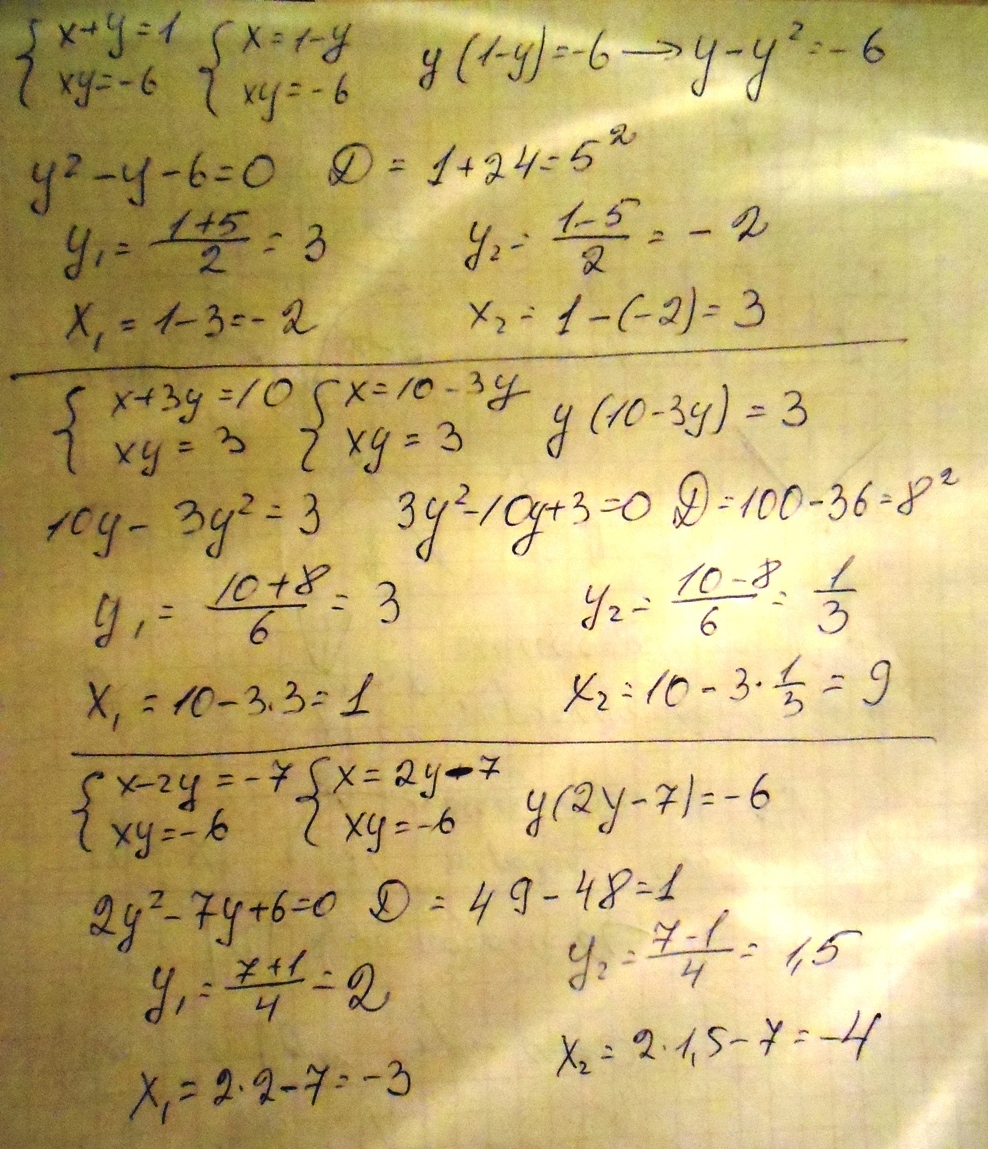 { x+y=1 { x=1-y y(1-y)=-6 → y-y²=-6
{ xy=-6 { xy=-6
y²-y-6=0 D = 1+24=5²
y₁ = (1+5)/2 = 3 y₂ = (1-5)/2 = -2
x₁ = 1-3=-2 x₂ = 1-(-2)=3
{ x+3y=10 { x=10-3y y(10-3y)=3
{ xy=3 { xy=3
10y-3y²=3 3y²-10y+3=0 D=100-36=8²
y₁ = (10+8)/6 = 3 y₂ = (10-8)/6 = 1/3
x₁ = 10-3·3=1 x₂ = 10-3·1/3 = 9
{ x-2y=-7 { x=2y-7 y(2y-7)=-6
{ xy=-6 { xy=-6
2y²-7y+6=0 D = 49-48=1
y₁ = (7+1)/4 = 2 y₂ = (7-1)/4 = 1,5
x₁ = 2·2-7=-3 x₂ = 2·1,5-7=-4